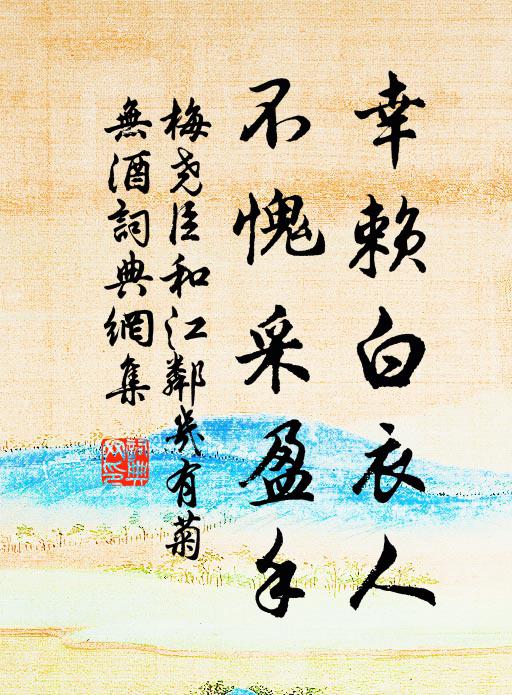 幸赖白衣人
不愧采盈手
梅尧臣和江鄰幾有菊
無酒詞典網集